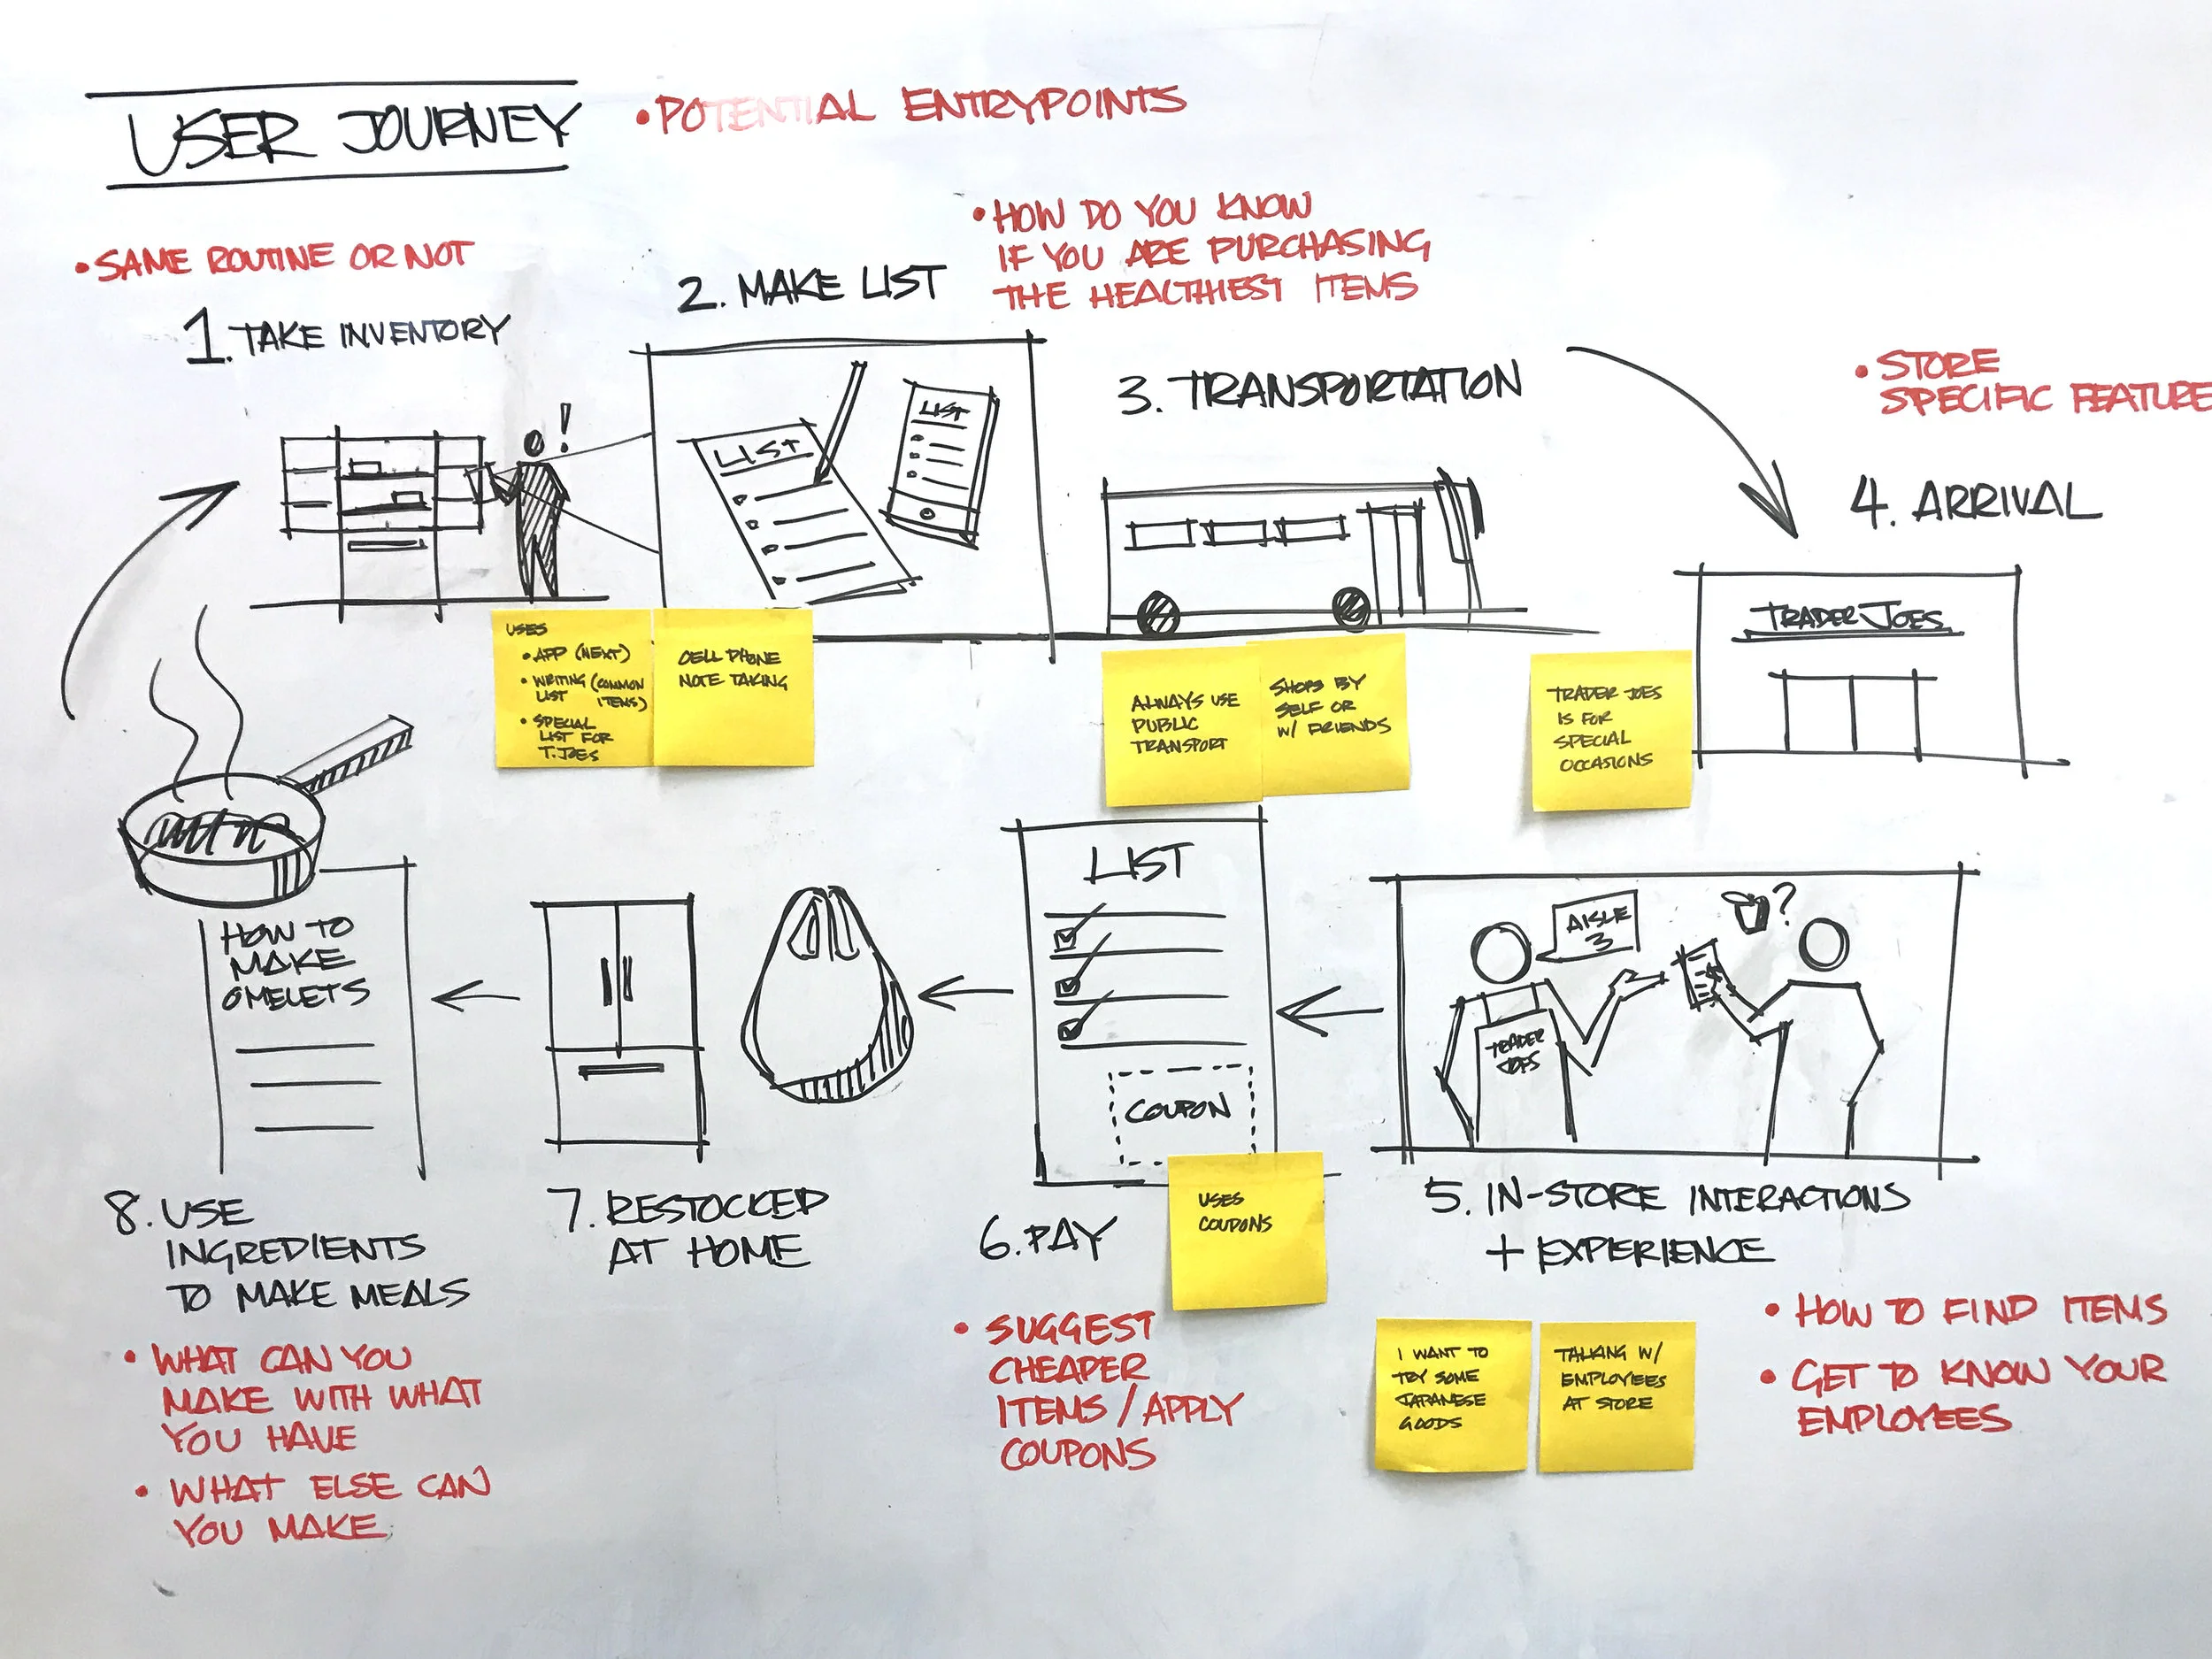 USER JOURNEY
• POTENTIAL ENTRYPOINTS
• SAME ROUTINE OR NOT
1. TAKE INVENTORY
!
2. MAKE LIST
• HOW DO YOU KNOW
IF YOU ARE PURCHASING
THE HEALTHIEST ITEMS
LIST
LIST
USES
• APP (NEXT)
• WRITING (COMMON
LIST ITEMS)
• SPECIAL
LIST FOR
T. JOES
CELL PHONE
NOTE TAKING
3. TRANSPORTATION
ALWAYS USE
PUBLIC
TRANSPORT
SHOPS BY
SELF OR
W/ FRIENDS
• STORE
SPECIFIC FEATURE
4. ARRIVAL
TRADER JOES
TRADER JOES
IS FOR
SPECIAL
OCCASIONS
AISLE
3
?
TRADER
JOES
5. IN-STORE INTERACTIONS
+ EXPERIENCE
• HOW TO FIND ITEMS
• GET TO KNOW YOUR
EMPLOYEES
I WANT TO
TRY SOME
JAPANESE
GOODS
TALKING W/
EMPLOYEES
AT STORE
LIST
COUPON
USES
COUPONS
6. PAY
• SUGGEST
CHEAPER
ITEMS / APPLY
COUPONS
7. RESTOCKED
AT HOME
HOW TO
MAKE
OMELETS
8. USE
INGREDIENTS
TO MAKE MEALS
• WHAT CAN YOU
MAKE WITH WHAT
YOU HAVE
• WHAT ELSE CAN
YOU MAKE